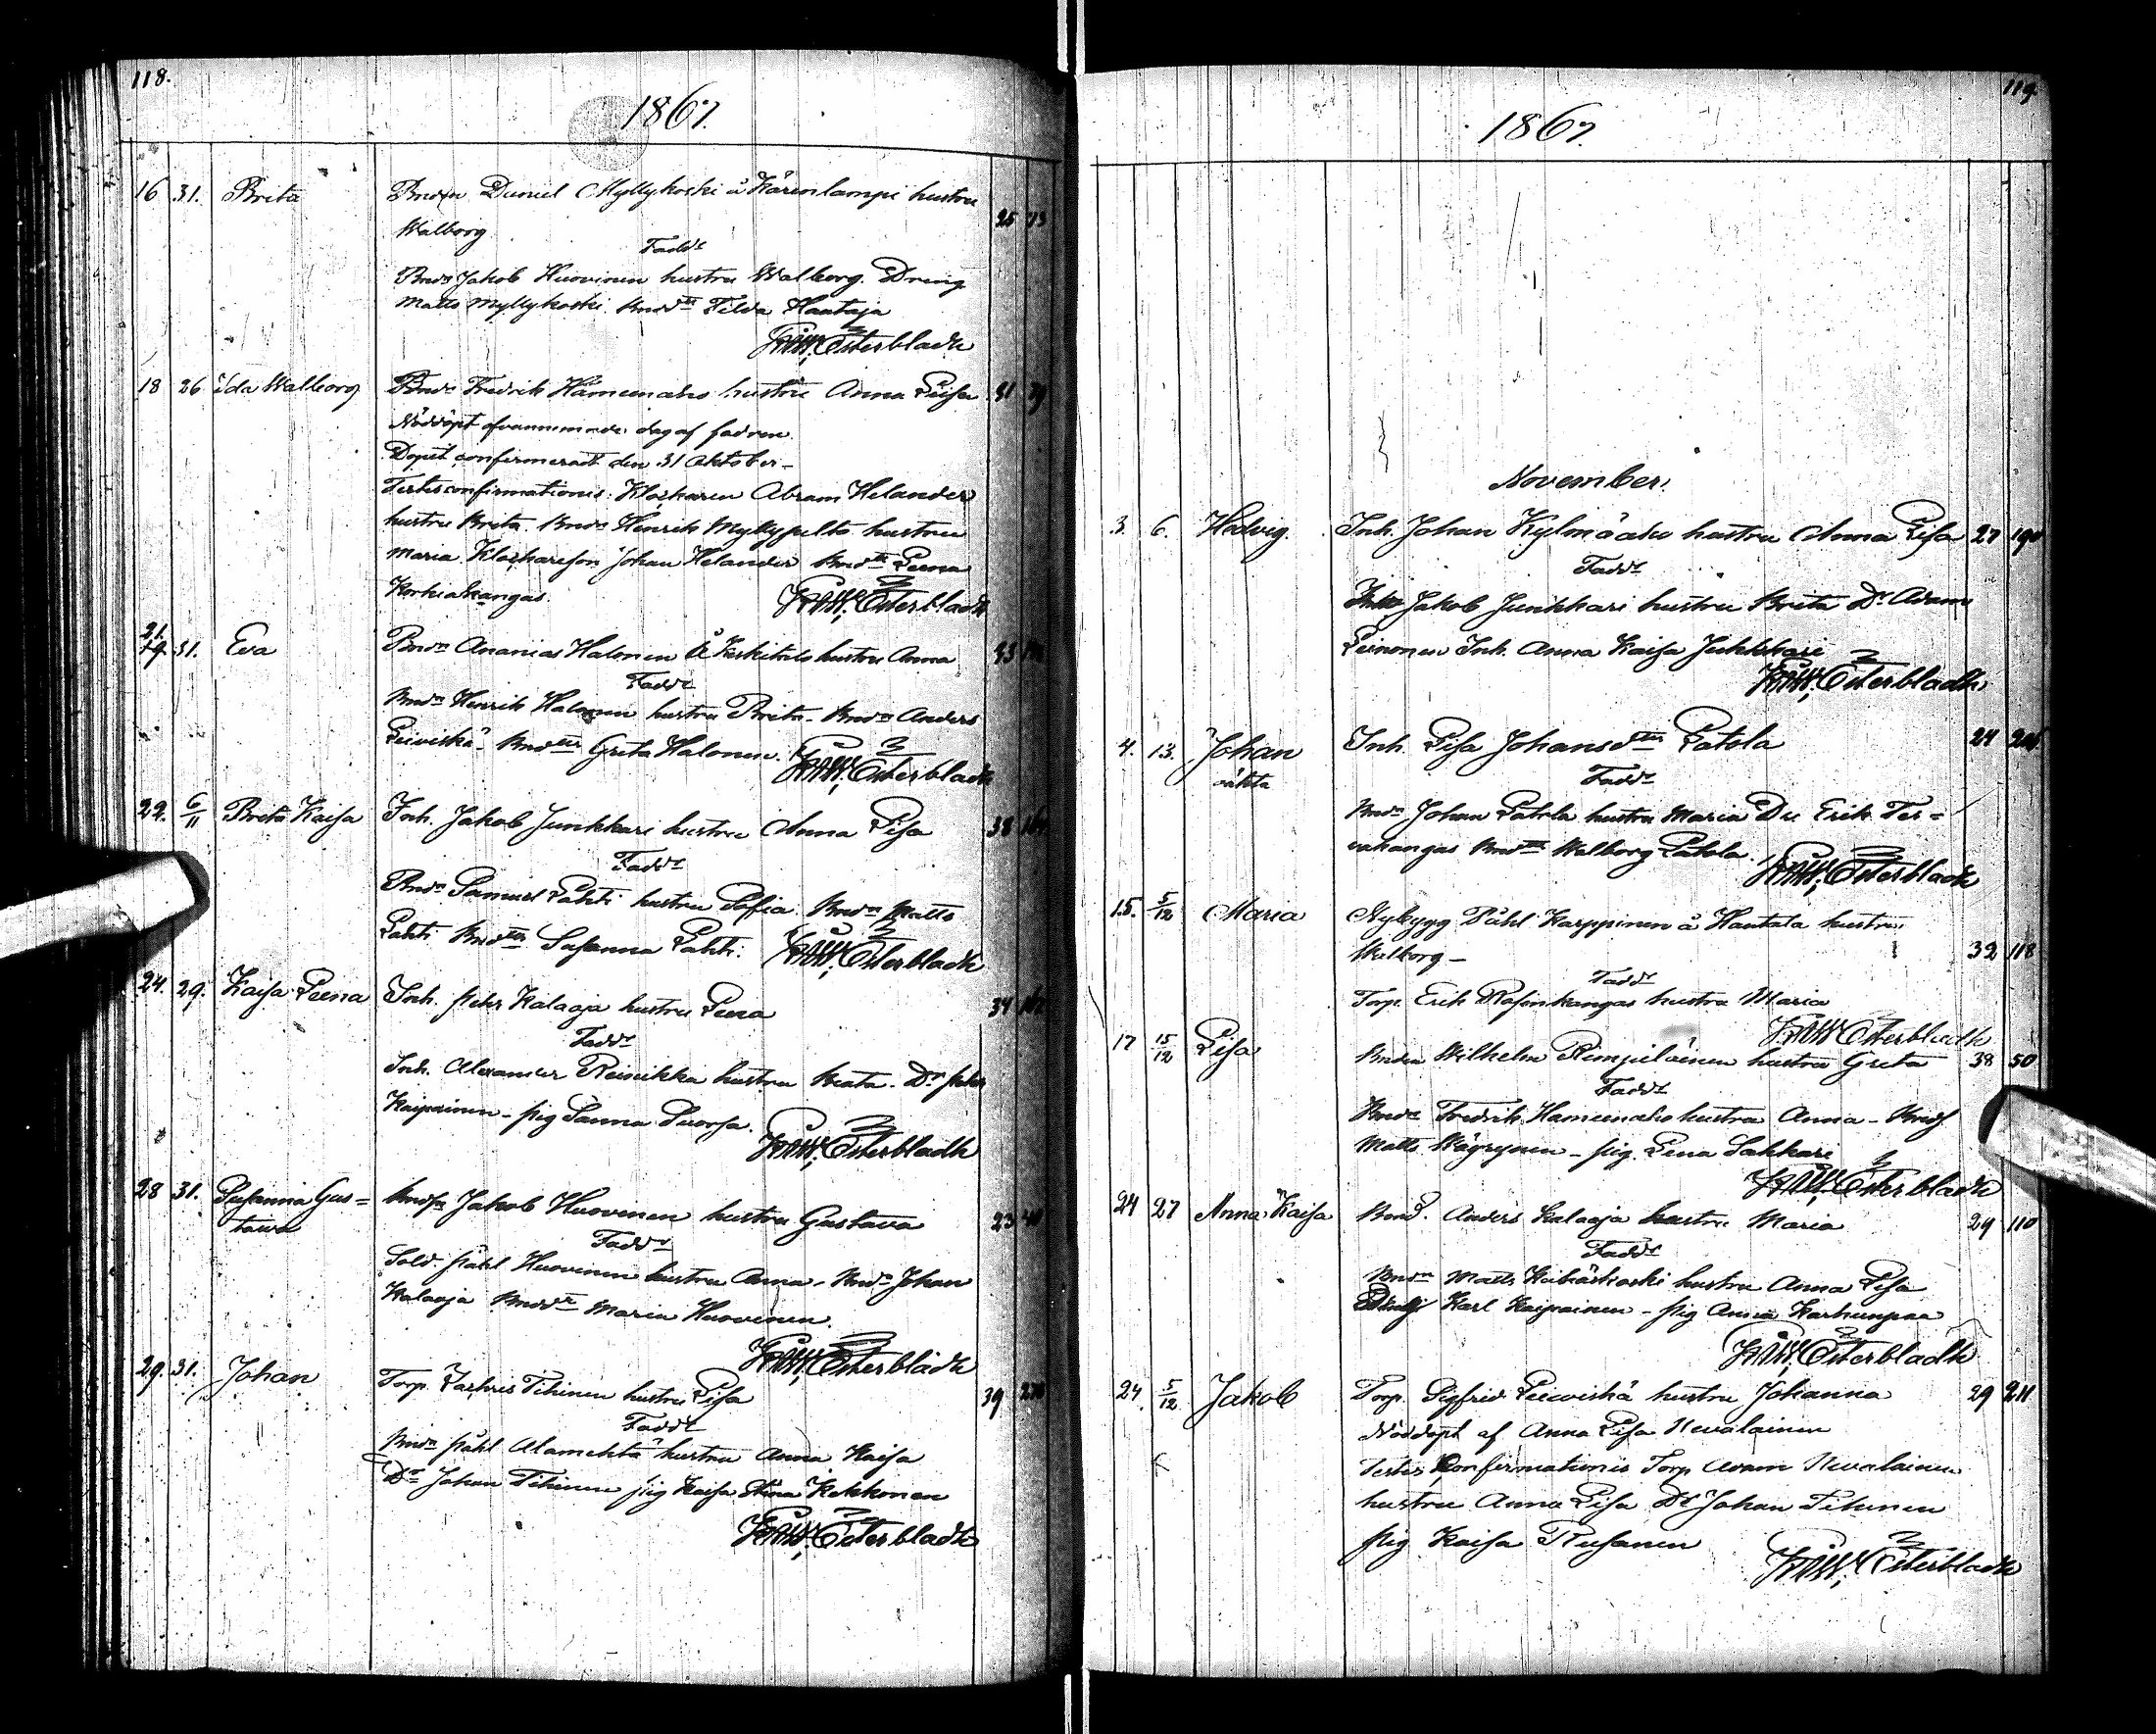 118.
1867.
16 31. Brita Bondn Daniel Myllykoski å Kärenlampi hustru 25 73
Walborg
Faddr
Bndn Jakob Huovinen hustru Walborg. Dreng
Matts Myllykoski. Bnddtr Tilda Hautaja
Österbladh
18 26 Ida Walborg Bndn Fredrik Hämeenaho hustru Anna Liisa 31 39
Nöddöpt ofvannemnde dag af fadren.
Dopet confirmeradt den 31 Oktober –
Testes confirmationis: Klockaren Abram Helander
hustru Brita. Bndn Henrik Myllypelto hustru
Maria. Klockareson Johan Helander Bnddtr Leena
Korkiakangas.
Österbladh
21.
19. 31. Eva Bndn Ananias Halonen å Keskitalo hustru Anna 43
Faddr
Bndn Henrik Halonen hustru Brita – Bndn Anders
Leiviskä – Bnddtr Greta Halonen.
Österbladh
22. 6/11 Brita Kaisa Inh. Jakob Junkkari hustru Anna Lisa 38
Faddr
Bndn Samuel Lahti hustru Sofia. Bndn Matts
Lahti Bnddtr Susanna Lahti.
Österbladh
24. 29. Kaisa Leena Inh. Pehr Kalaaja hustru Leena 34
Faddr
Inh. Alexander Reinikka hustru Beata. Dr Pehr
Kaipainen – pig Sanna Suorsa.
Österbladh
28 31. Susanna Gus=
tawa Bndsn Jakob Huovinen hustru Gustava 23
Faddr
Sold. Påhl Huovinen hustru Anna – Bndn Johan
Kalaaja Bnddr Maria Huovinen.
Österbladh
29. 31. Johan Torp. Zachris Tihinen hustru Lisa 39
Faddr
Bndn Påhl Alamehtä hustru Anna Kaisa
Dr Johan Tihinen pig Kaisa Stina Kekkonen
Österbladh
119.
1867.
November.
3. 6. Hedvig. Inh. Johan Kylmäaho hustru Anna Lisa 27 190
Faddr
Jakob Junkkari hustru Brita Dr Adam
Leinonen Inh. Anna Kaisa Junkkari
Österbladh
4. 13. Johan
oäkta Inh. Lisa Johansdtr Latola 24
Faddr
Bndn Johan Latola hustru Maria Dr Erik Ter=
vakangas Bnddtr Walborg Latola.
Österbladh
15. 5/12 Maria Nybygg Påhl Karppinen å Hautala hustru
Walborg – 32 118
Faddr
Torp. Erik Rasinkangas hustru Maria
Österbladh
17 15/12 Lisa Bndn Wilhelm Rimpiläinen hustru Greta 38 50
Faddr
Bndn Fredrik Hämeenaho hustru Anna – Bnds
Matts Väyrynen – pig. Lena Sakkari
Österbladh
24 27 Anna Kaisa Bnd. Anders Kalaaja hustru Maria 29 110
Faddr
Bndn Matts Kuhäkoski hustru Anna Lisa
Karl Kaipainen – pig Anna Karhunpää
Österbladh
24. 5/12 Jakob Torp. Sigfrid Leiviskä hustru Johanna 29 211
Nöddöpt af Anna Lisa Nevalainen
Testes Confirmationis Torp Adam Nevalainen
hustru Anna Lisa Dr Johan Tihinen
pig Kaisa Rusanen
Österbladh